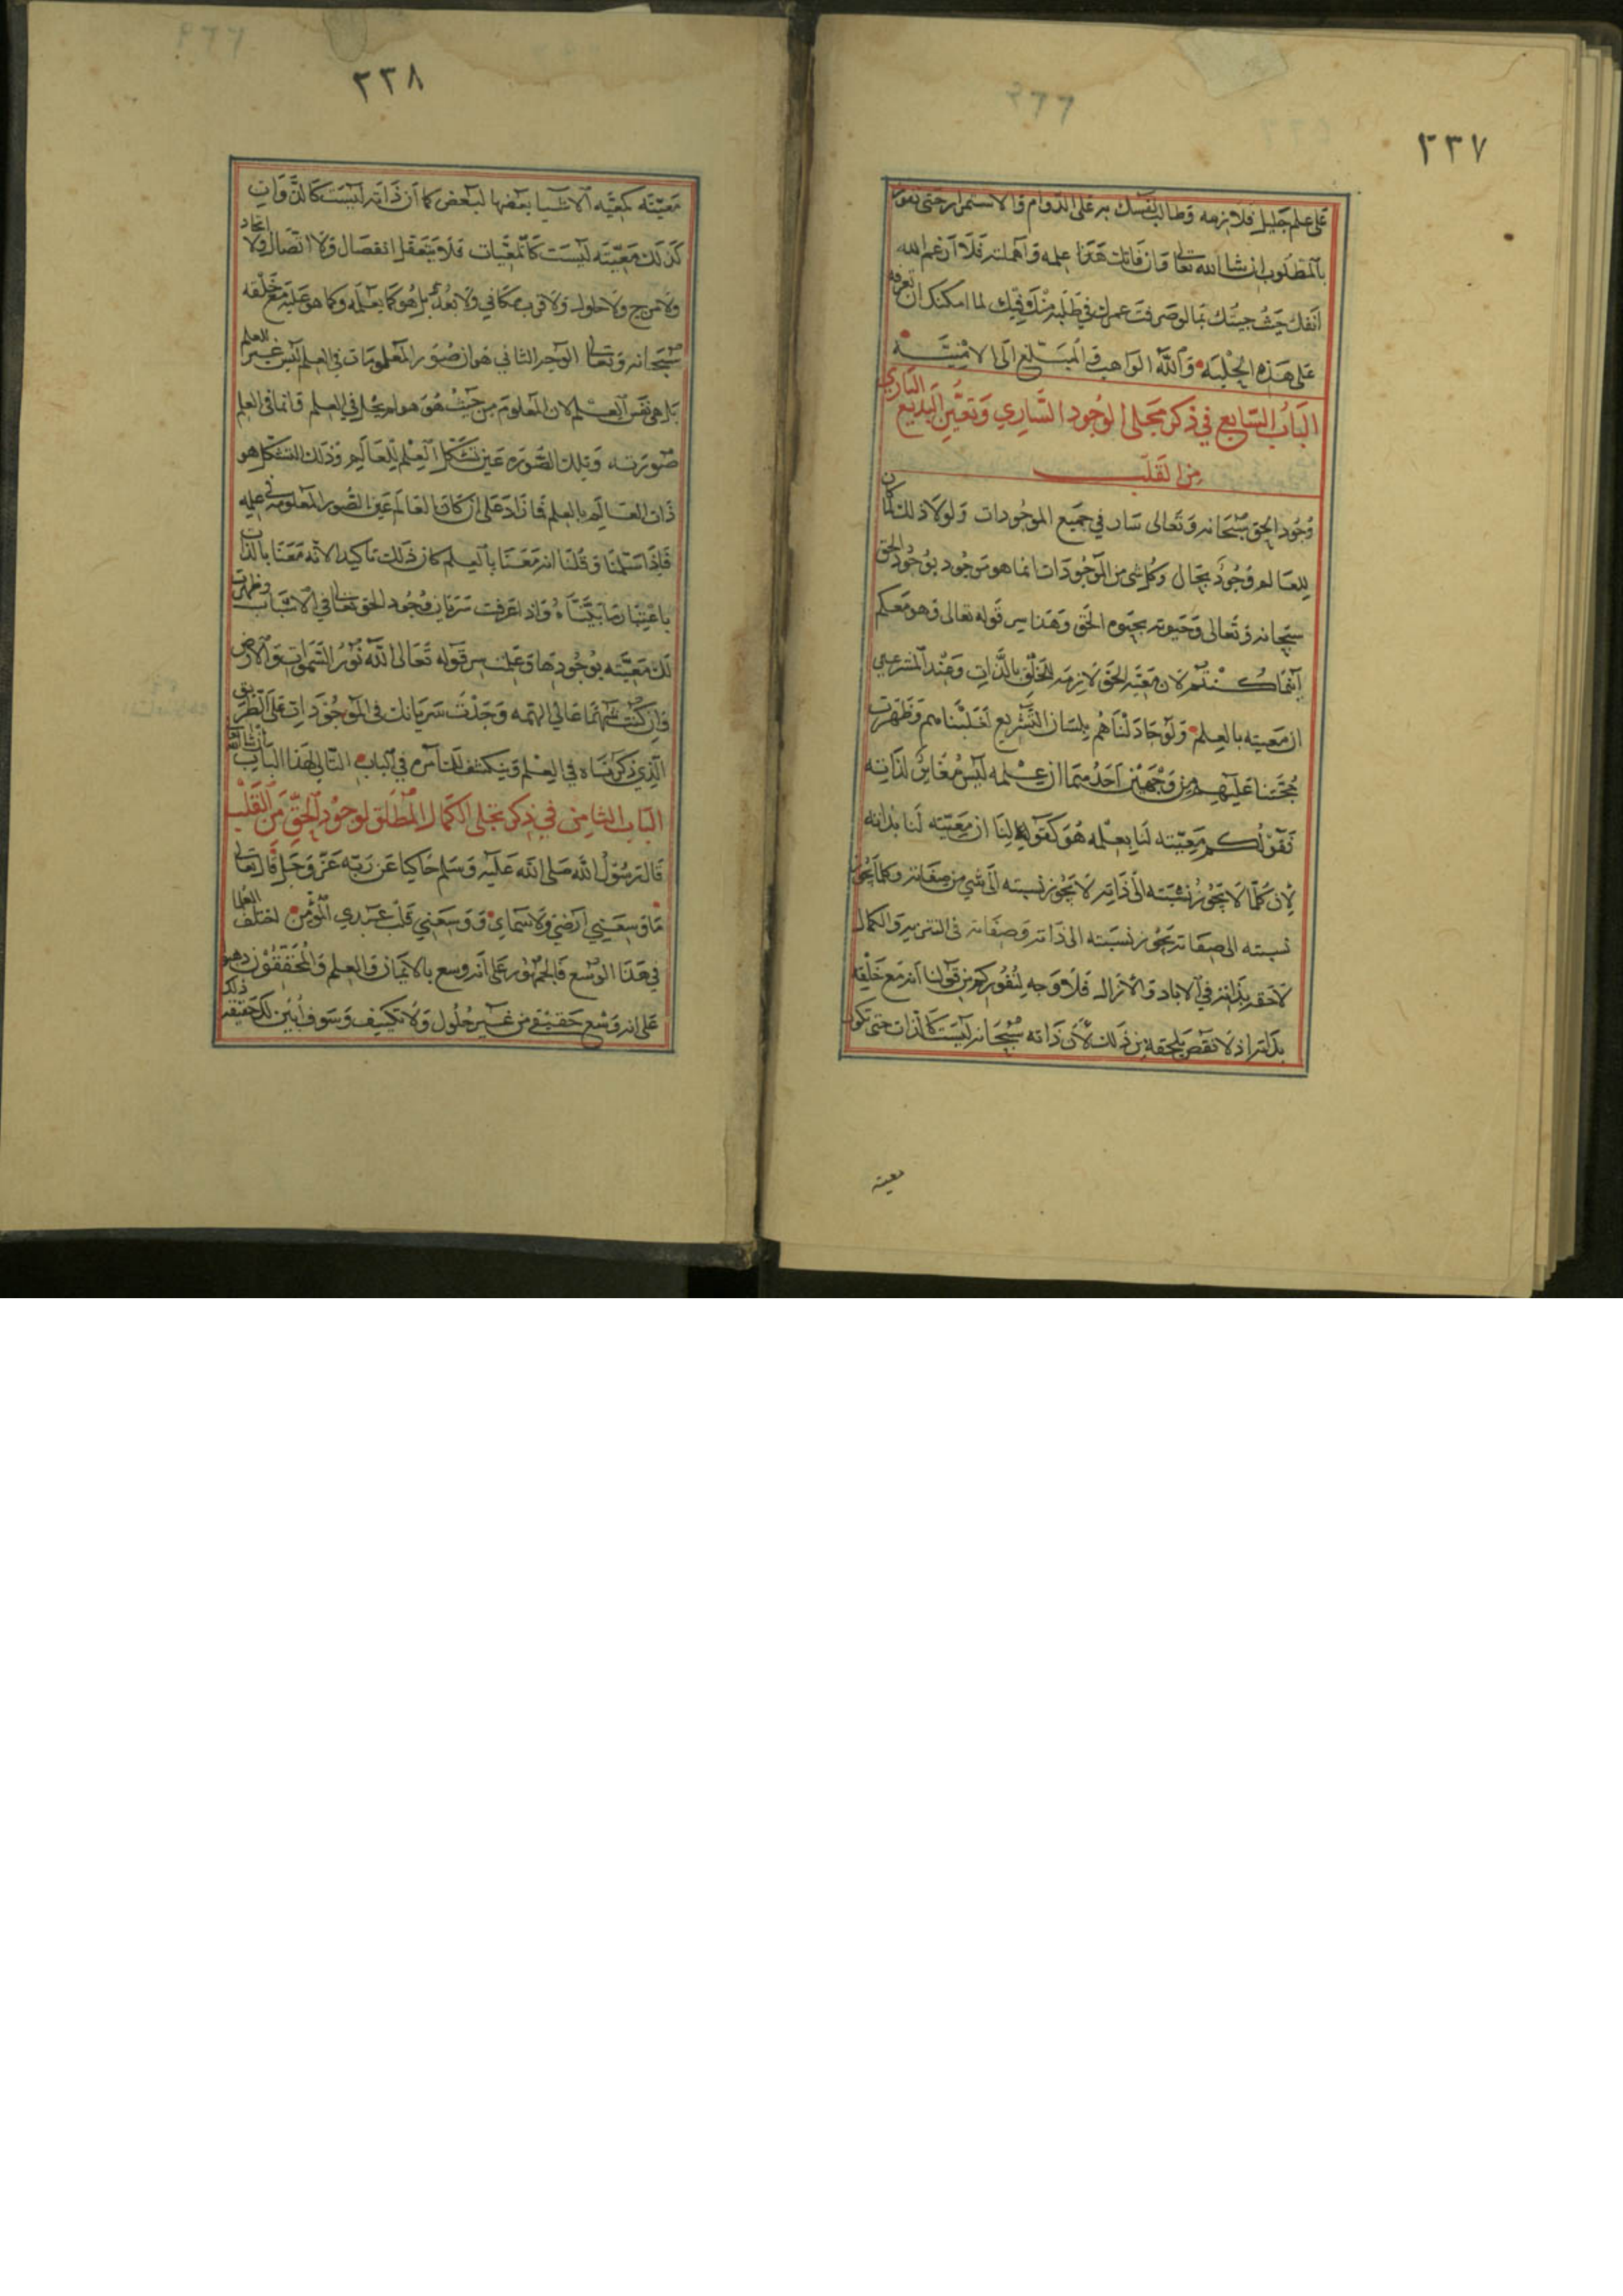 ٣٣٧
على علم جليل فلازمه وطالب نفسك به على الدوام والاستمرار حتى تفوز
بالمطلوب ان شا الله تعالى وان فاتك هذا علمه واهملته فلا ارغم الله
انفك حيث جيتك بما لو صرفت عمرك في طلبه منك وفيك لما امكنك ان تعرفه
على هذه الجليه والله الواهب في المبلغ الى الامنيه
الباب السابع في ذكر مجلى الوجود الساري وتعين البديع الباري
من القلب
وجود الحق سبحانه وتعالى سار في جميع الموجودات ولولا ذلك لما كان
للعالم وجود بحال وكل شى من الموجودات انما هو موجود بوجود الحق
سبحانه وتعالى وحيوته بحيوه الحق وهذا سر قوله تعالى وهو معكم
اينما كنتم لان معيه الحق لازمه للخلق بالذات وعند المتشرعين
ان معيته بالعلم ولو جادلناهم بلسان التشريع لغلبناهم وظهرت
حجتنا عليهم من وجهين احدهما ان علمه ليس مغاير لذاته
فقولكم معيته لنا بعلمه هو كقولنا ان معيته لنا بذاته
لان كلما لا تجوز نسبته الى ذاته لا تجوز نسبته الى شي من صفاته وكلما تجوز
نسبته الى صفاته تجوز نسبته الى ذاته وصفاته في التنزيه والكمال
لاحقه بذاته في الاباد والازال فلا وجه لنفوركم من قولنا انه مع خلقه
بذاته اذ لا نقص يلحقه من ذلك لان ذاته سبحانه ليست كالذات حتى تكون
معيته
٣٣٨
معيته كمعيه الاشيا بعضها لبعض كما ان ذاته ليست كالذوات
كذلك معيته ليست كالمعيات فلا يتعقل انفصال ولا اتصال ولا اتحاد
ولا مزج ولا حلول ولا قرب مكاني ولا بعد بل هو كما يعلمه وكما هو عليه مع خلقه
سبحانه وتعالى الوجه الثاني هو ان صور المعلومات في العلم ليس غير العلم
بل هى نفس العلم لان المعلوم من حيث هو هو لم يحل في العلم وانما في العلم
صورته وتلك الصوره عين تشكل العلم للعالم وذلك التشكل هو
ذات العالم بالعلم فما زاد على ان كان العالم عين الصور المعلومه في علمه
فاذا سلمنا وقلنا انه معنا بالعلم كان ذلك تاكيدا لانه معنا بالذات
باعتبار ما بيناه واذا عرفت سريان وجود الحق تعالى في الاشيا وظهرت
لك معيته بوجودها وعلمت سر قوله تعالى الله نور السموات والارض
وان كنت شهما عالي الهمه وجدت سريانك في الموجودات على الطريق
الذي ذكرناه في العلم وينكشف لك امره في الباب التالي لهذا الباب ان شا الله
الباب الثامن في ذكر تجلى الكمال المطلق لوجود الحق من القلب
قال رسول الله صلى الله عليه وسلم حاكيا عن ربه عز وجل قال تعالى
ما وسعني ارضي ولا سماي ووسعني قلب عبدي المؤمن اختلف العلما
في هذا الوسع فالجمهور على انه وسع بالايمان والعلم والمحققون ذهبوا
على انه وسع حقيقي من غير حلول ولا تكييف وسوف ابين لك حقيقه ذلك